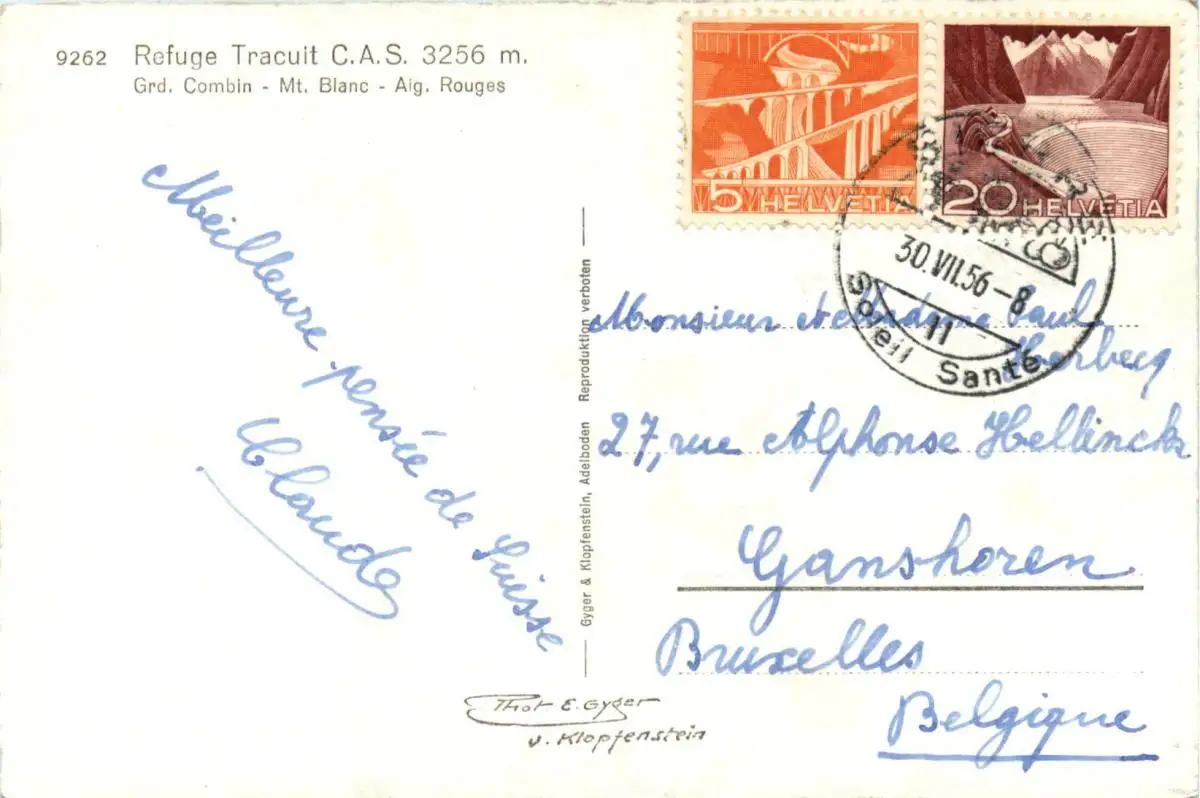 9262 Refuge Tracuit C.A.S. 3256 m.
Grd. Combin - Mt. Blanc - Aig. Rouges
Meilleure pensée de Suisse
Claude
Gyger & Klopfenstein, Adelboden Reproduktion verboten
5 HELVETIA
20 HELVETIA
30.VII.56-8
11
Soleil Santé
Monsieur et Madame Paul
Herbecq
27, rue Alphonse Hellinckx
Ganshoren
Bruxelles
Belgique
Phot E. Gyger
v. Klopfenstein